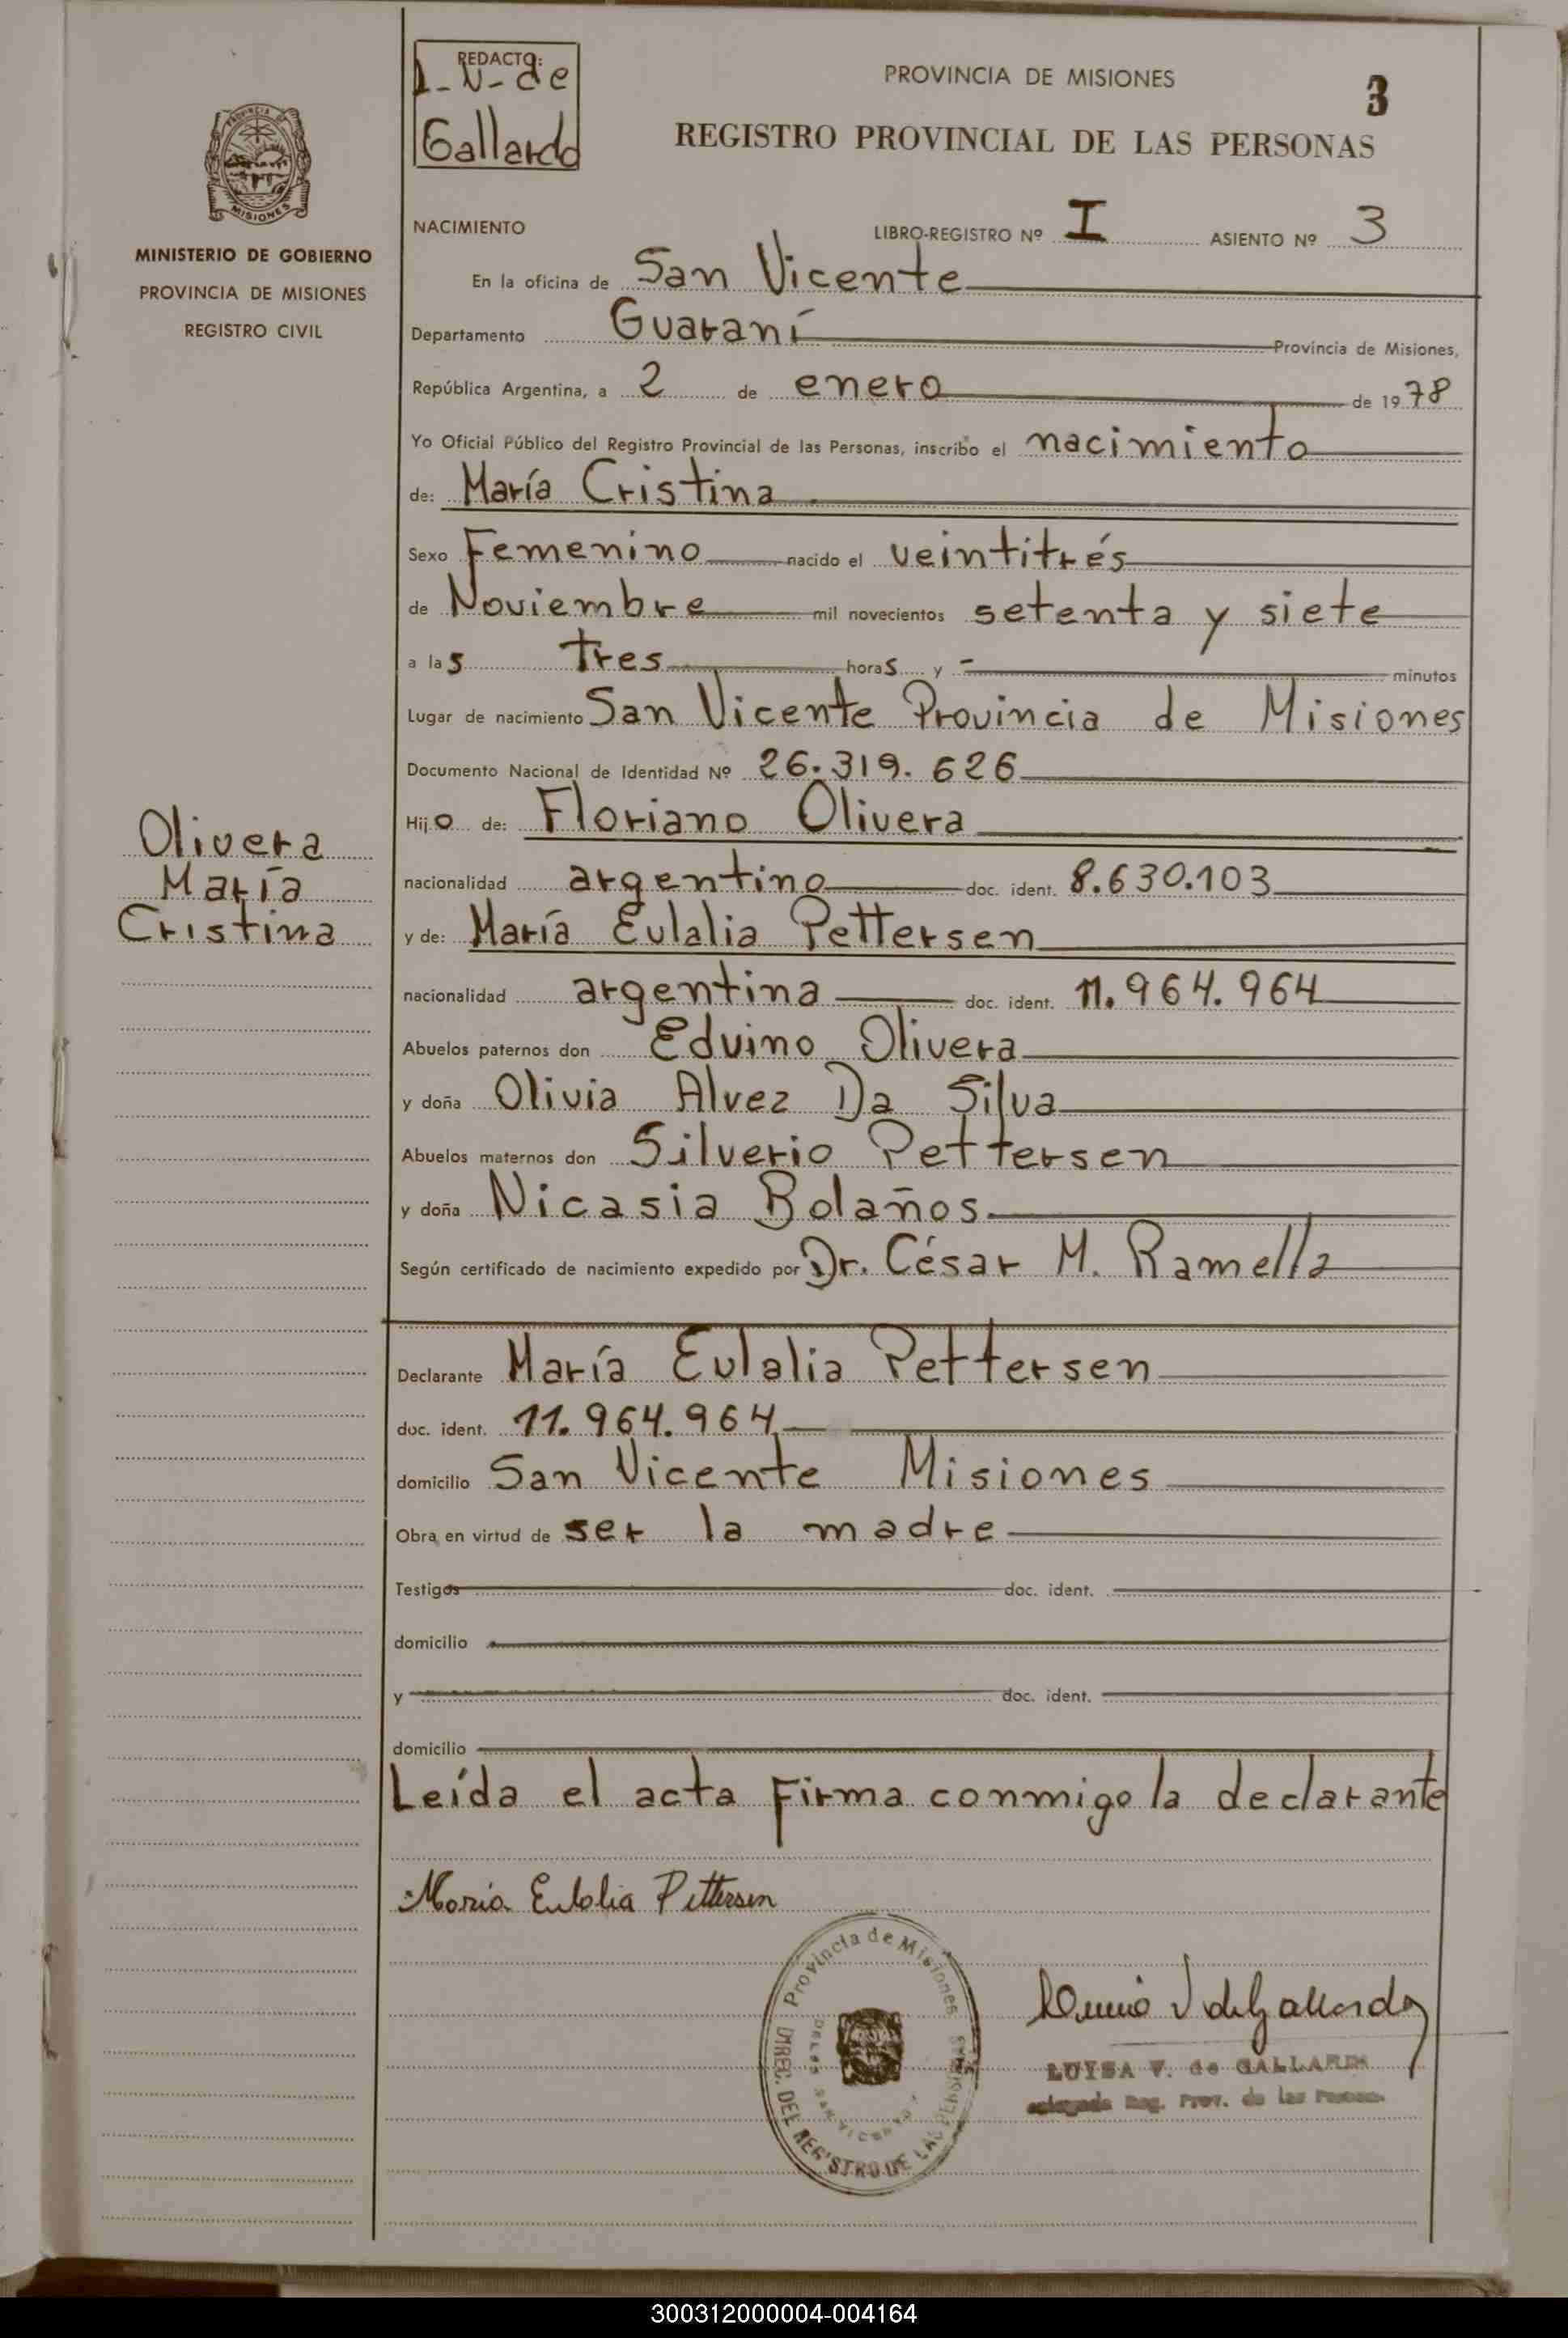 REDACTO:
L-V-de
Gallardo
PROVINCIA DE MISIONES
3
REGISTRO PROVINCIAL DE LAS PERSONAS
MISIONES
MINISTERIO DE GOBIERNO
PROVINCIA DE MISIONES
REGISTRO CIVIL
NACIMIENTO
LIBRO-REGISTRO Nº I ASIENTO Nº 3
En la oficina de San Vicente
Departamento Guaraní Provincia de Misiones,
República Argentina, a 2 de enero de 1978
Yo Oficial Público del Registro Provincial de las Personas, inscribo el nacimiento
de: María Cristina
Sexo Femenino nacido el veintitrés
de Noviembre mil novecientos setenta y siete
a las tres horas y - minutos
Lugar de nacimiento San Vicente Provincia de Misiones
Documento Nacional de Identidad Nº 26.319.626
Hijo de: Floriano Olivera
nacionalidad argentino doc. ident. 8.630.103
y de: María Eulalia Pettersen
nacionalidad argentina doc. ident. 11.964.964
Abuelos paternos don Eduino Olivera
y doña Olivia Alvez Da Silva
Abuelos maternos don Silverio Pettersen
y doña Nicasia Bolaños
Según certificado de nacimiento expedido por Dr. César M. Ramella
Olivera
María
Cristina
Declarante María Eulalia Pettersen
doc. ident. 11.964.964
domicilio San Vicente Misiones
Obra en virtud de ser la madre
Testigos doc. ident.
domicilio
y doc. ident.
domicilio
Leída el acta Firma conmigo la declarante
María Eulalia Pettersen
Provincia de Misiones
DIREC. DEL REGISTRO DE LAS PERSONAS
SAN VICENTE
LUISA V. de GALLARDO
Reg. Prov. de las Person.
300312000004-004164